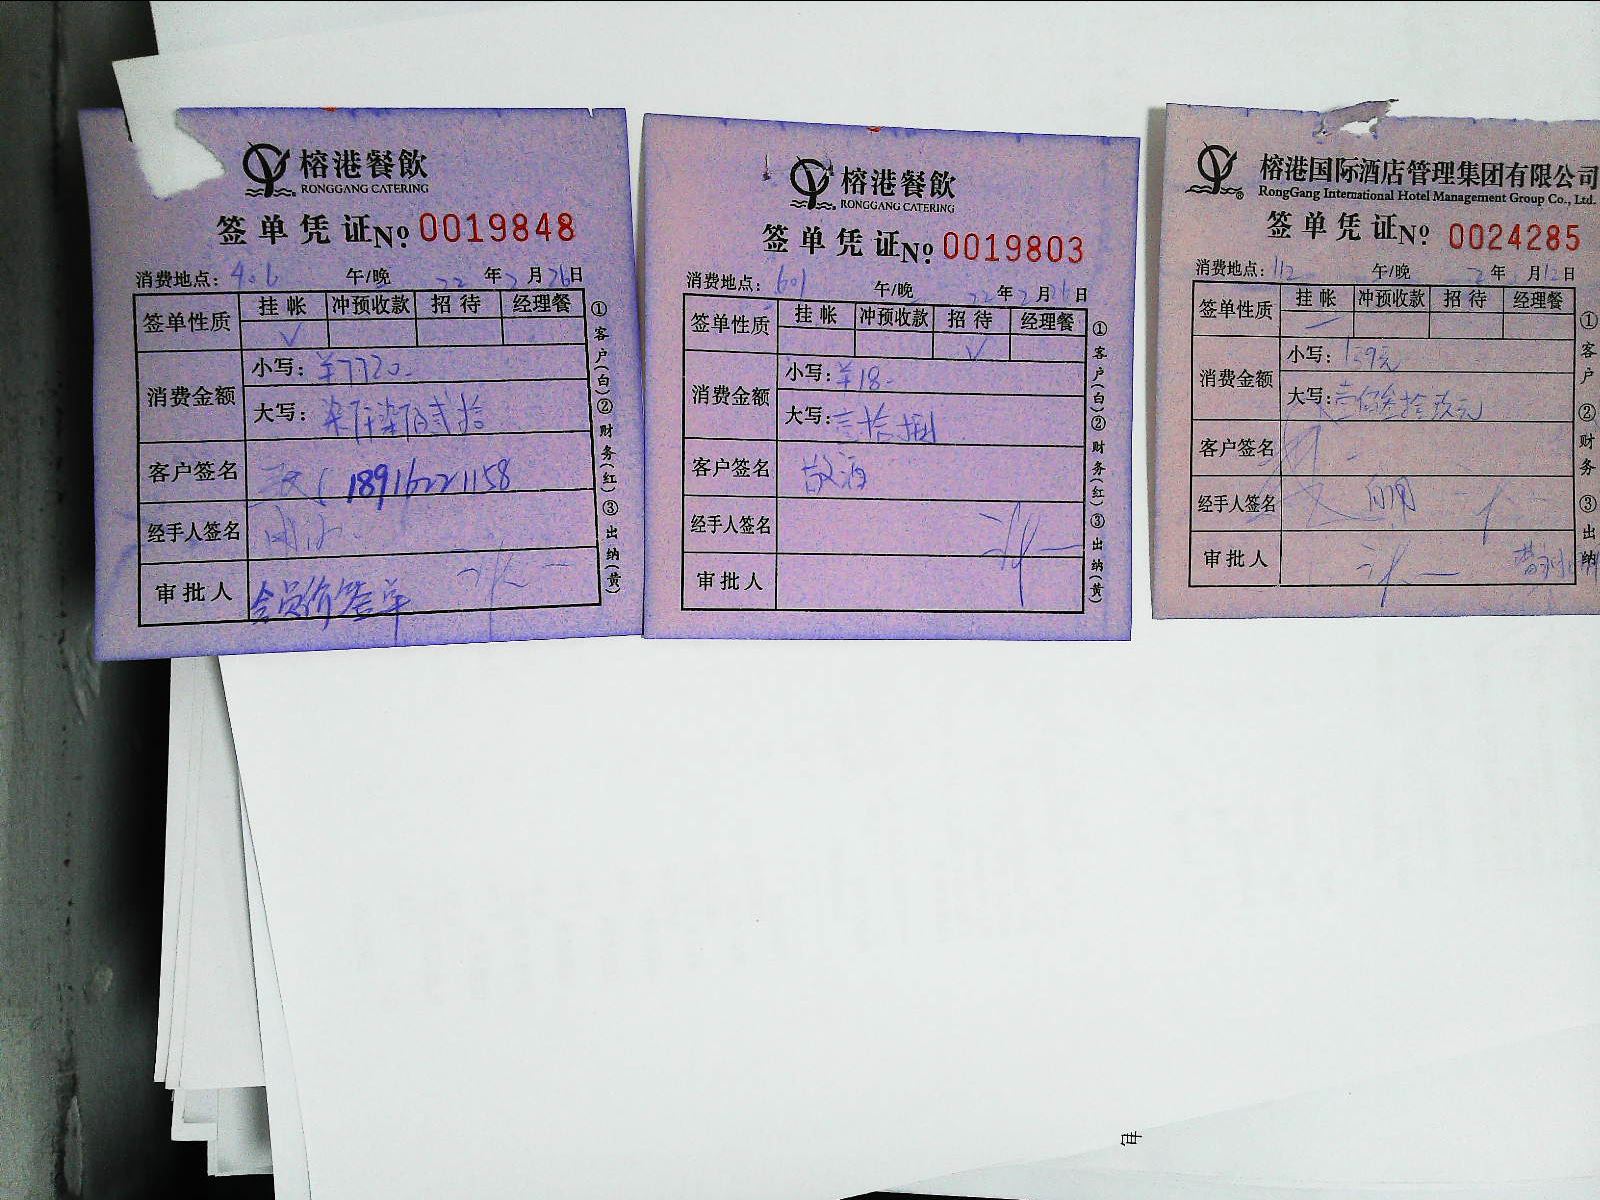 榕港餐飲
RONGGANG CATERING
签单凭证No 0019848
消费地点：406 午/晚 22年2月26日
签单性质 挂帐 冲预收款 招待 经理餐
√
消费金额 小写：¥7720.
大写：柒仟柒佰贰拾
客户签名 18916221158
经手人签名
审批人 会员价签单
①客户(白)②财务(红)③出纳(黄)
榕港餐飲
RONGGANG CATERING
签单凭证No 0019803
消费地点：601 午/晚 22年2月26日
签单性质 挂帐 冲预收款 招待 经理餐
√
消费金额 小写：¥18.
大写：壹拾捌
客户签名 敬酒
经手人签名
审批人
①客户(白)②财务(红)③出纳(黄)
榕港国际酒店管理集团有限公司
RongGang International Hotel Management Group Co., Ltd.
签单凭证No 0024285
消费地点：112 午/晚 22年 月12日
签单性质 挂帐 冲预收款 招待 经理餐
消费金额 小写：139元
大写：壹佰叁拾玖元
客户签名
经手人签名
审批人
①客户 ②财务 ③出纳